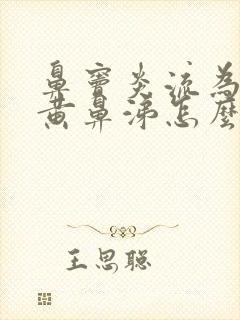 鼻窦炎流为
黄鼻涕怎麽
王思聪